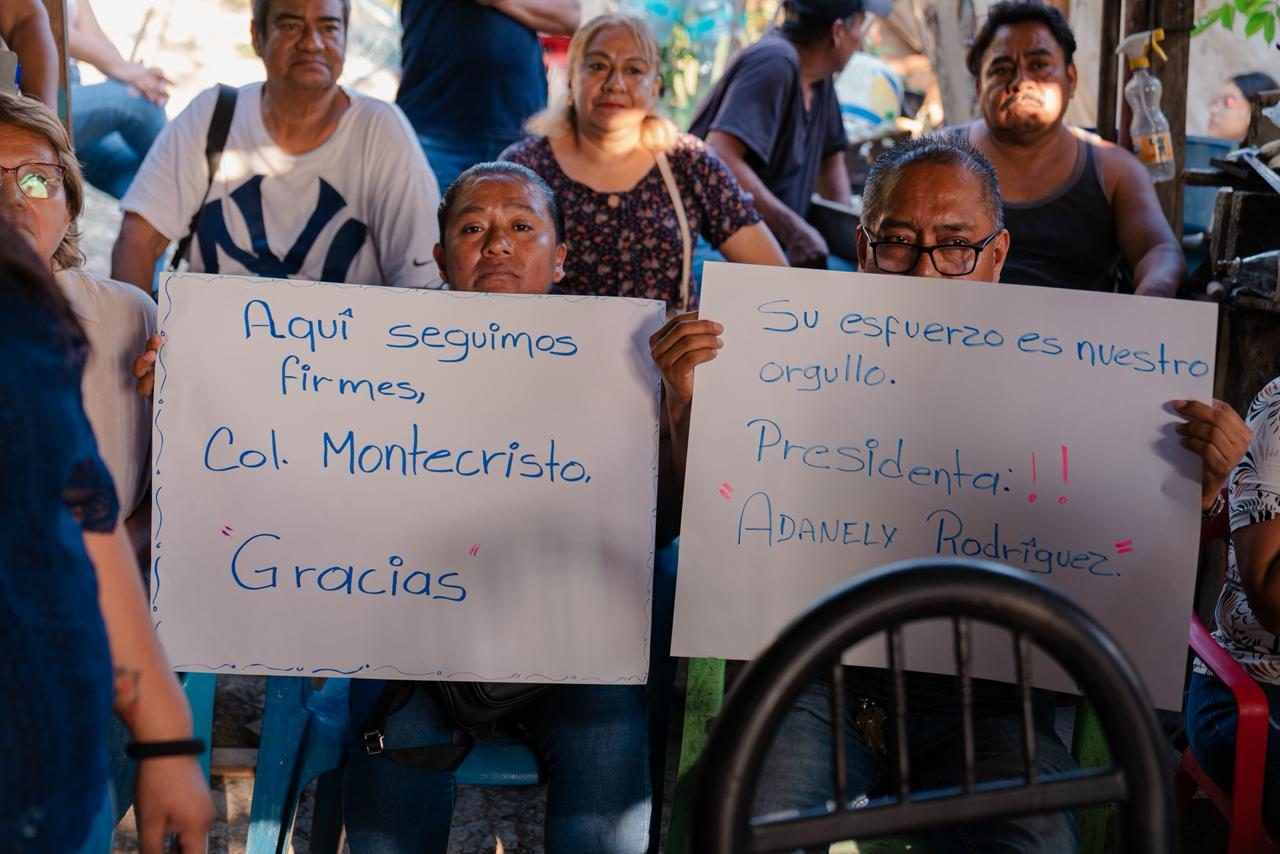 Aquí seguimos
firmes,
Col. Montecristo.
"Gracias"
Su esfuerzo es nuestro
orgullo.
Presidenta: !!
"ADANELY Rodríguez."
NY